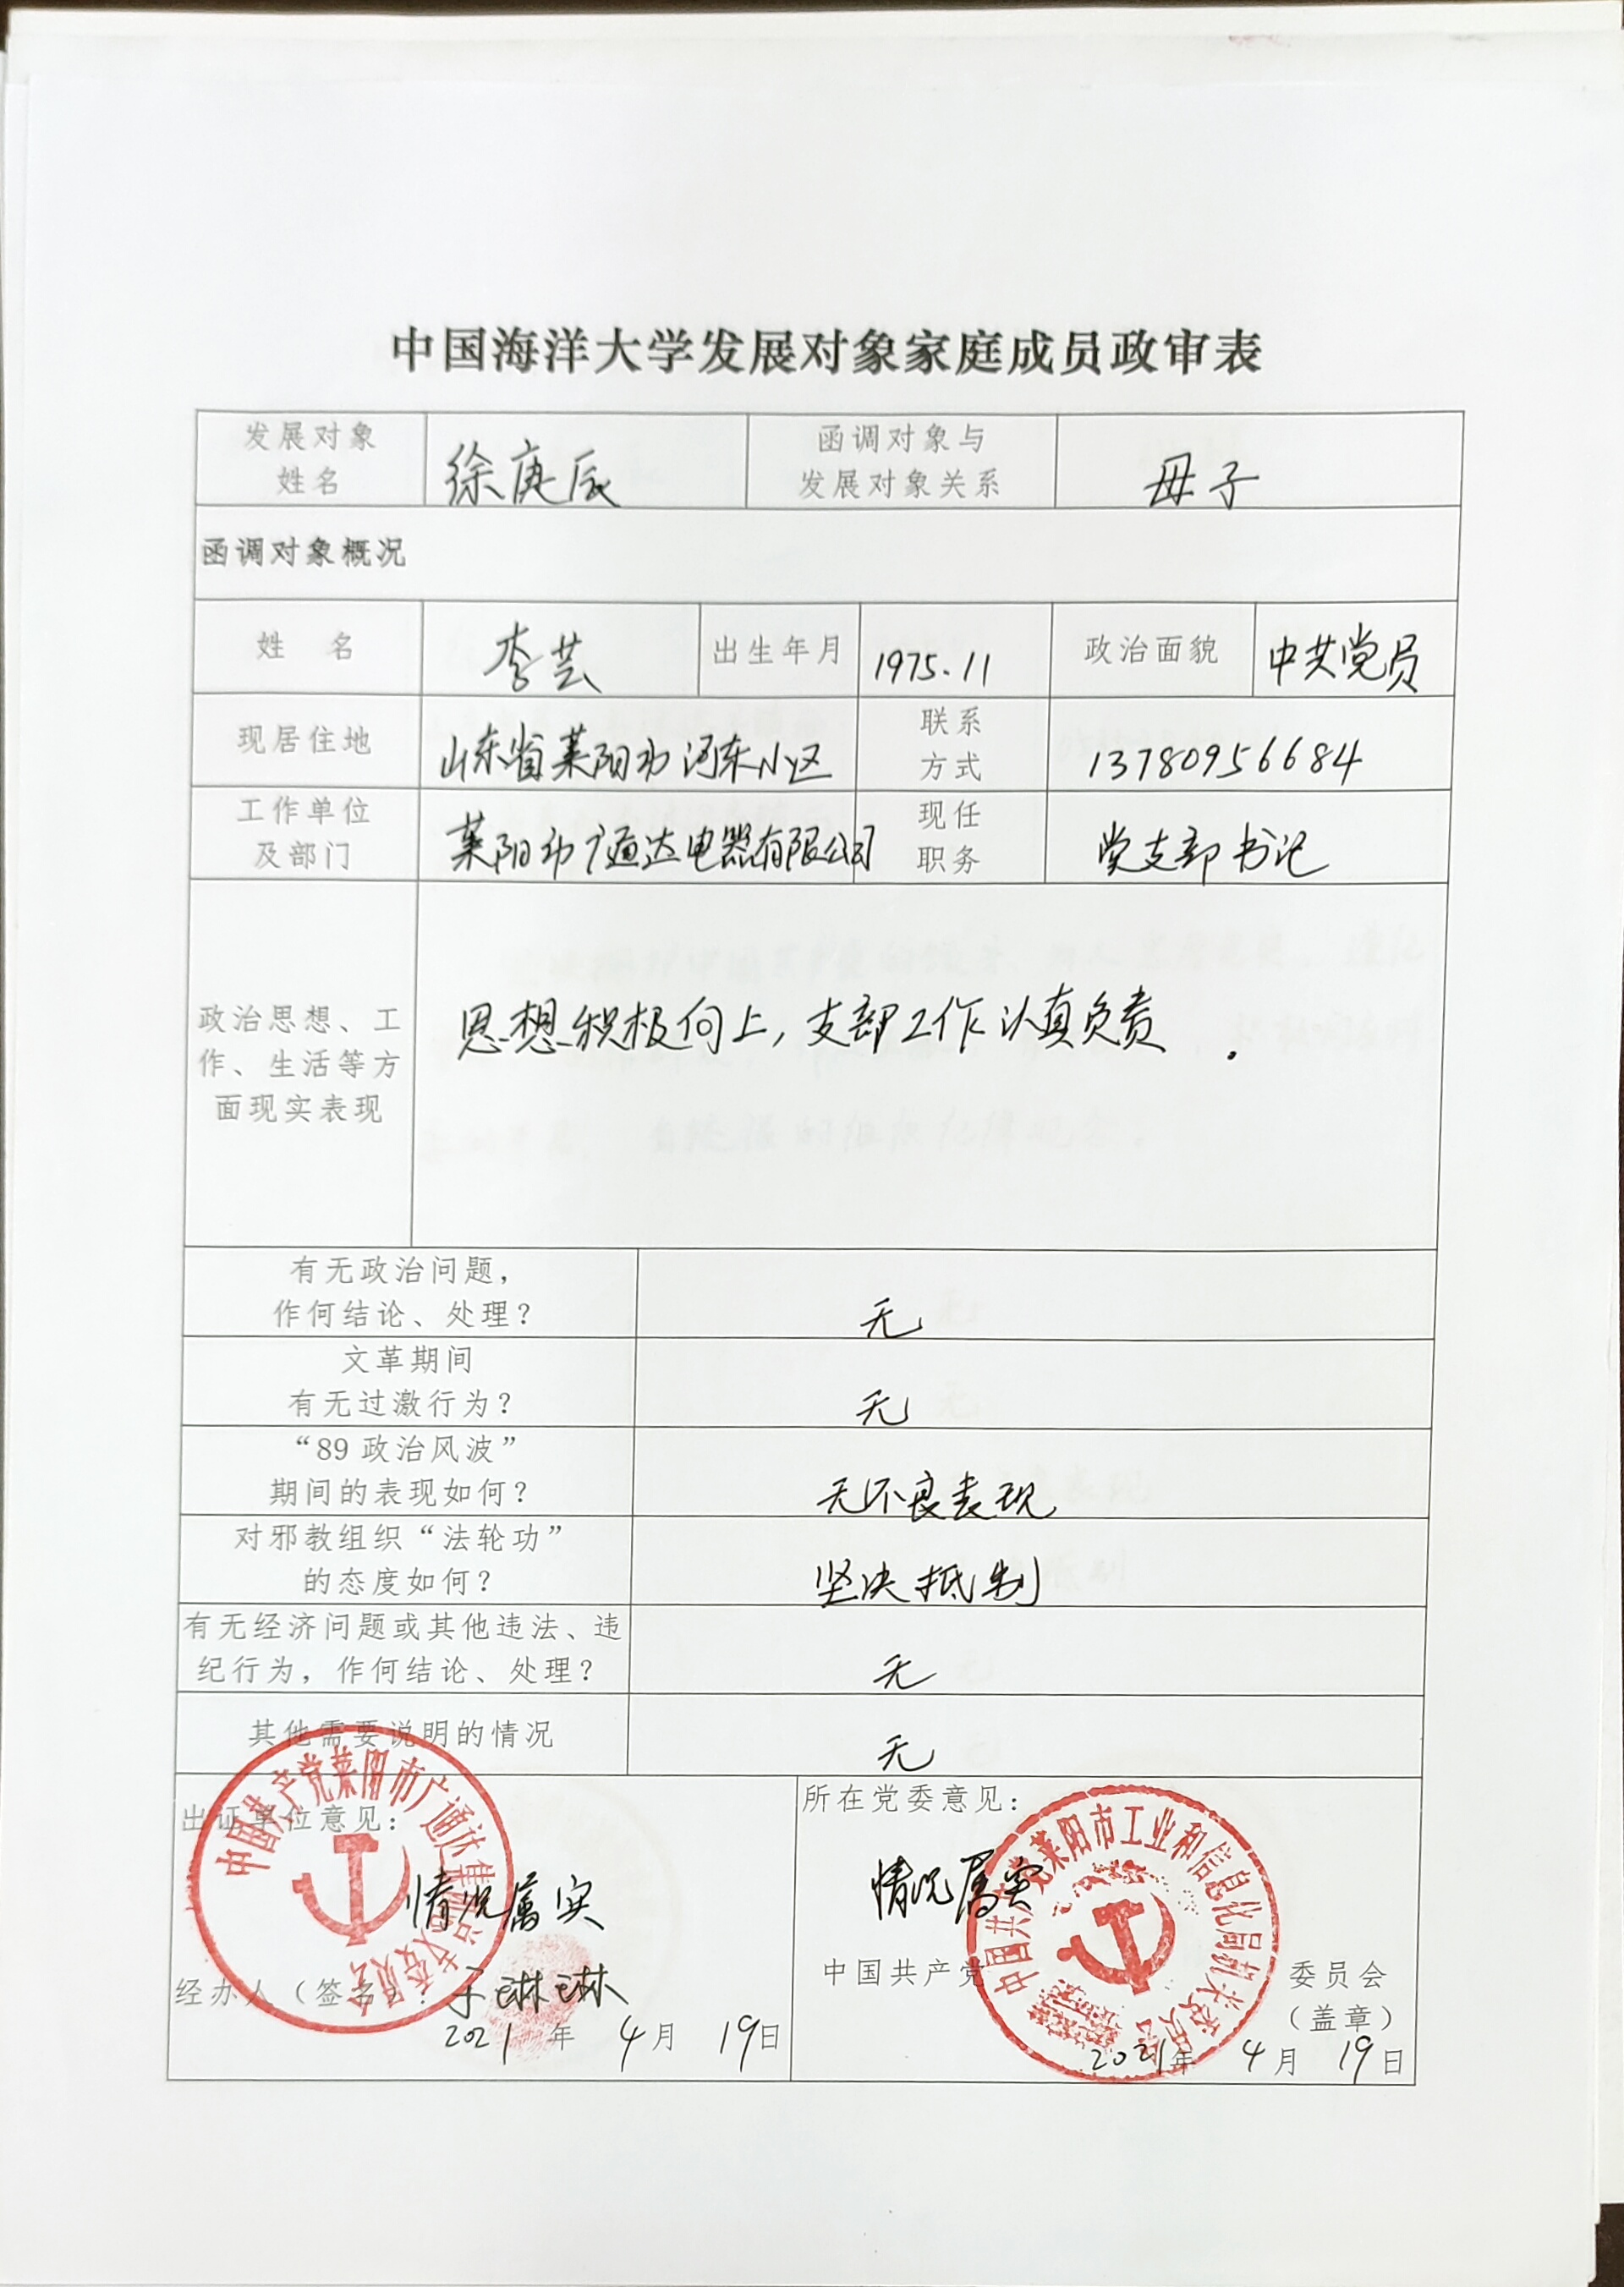 中国海洋大学发展对象家庭成员政审表
发展对象
姓名
徐庚辰
函调对象与
发展对象关系
母子
函调对象概况
姓 名
李芸
出生年月
1975.11
政治面貌
中共党员
现居住地
山东省莱阳市河东小区
联系
方式
13780956684
工作单位
及部门
莱阳市广通达电器有限公司
现任
职务
党支部书记
政治思想、工
作、生活等方
面现实表现
思想积极向上，支部工作认真负责。
有无政治问题，
作何结论、处理？
无
文革期间
有无过激行为？
无
“89 政治风波”
期间的表现如何？
无不良表现
对邪教组织“法轮功”
的态度如何？
坚决抵制
有无经济问题或其他违法、违
纪行为，作何结论、处理？
无
其他需要说明的情况
无
出证单位意见：
情况属实
经办人（签名）：于琳琳
2021 年 4 月 19 日
所在党委意见：
情况属实
中国共产党 委员会
（盖章）
2021 年 4 月 19 日
中国共产党莱阳市广通达
支部委员会
中国共产党莱阳市工业和信息化局机关委员会